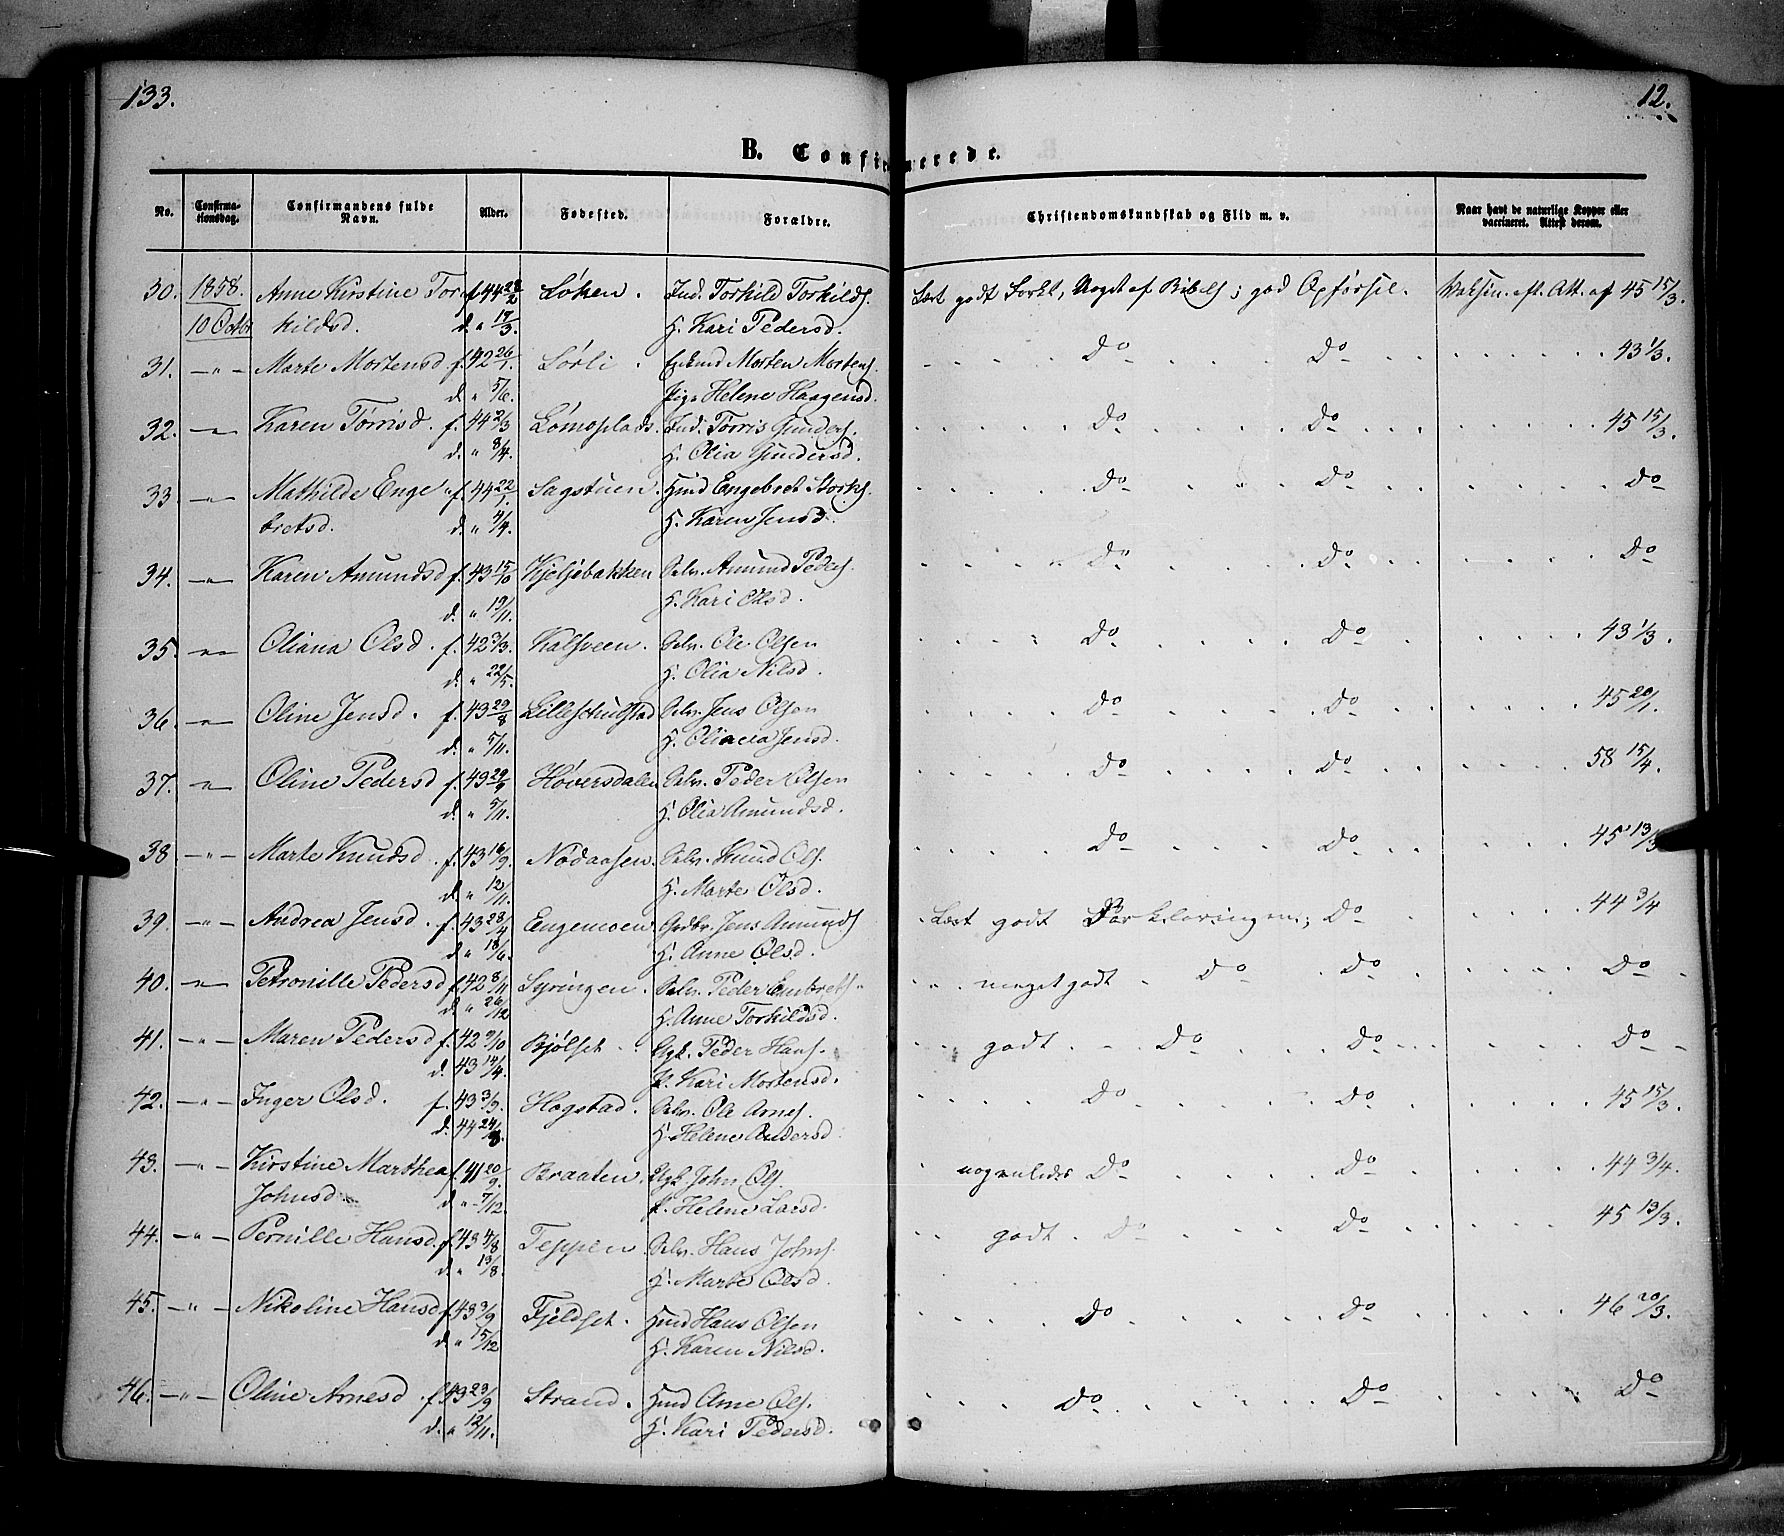 133.
12.
B. Confirmerede.
No. Confirmationsdag. Confirmandens fulde Navn. Alder. Fødested. Forældre. Christendomskundskab og Flid m. v. Naar havt de naturlige Kopper eller vaccineret. Attest derom.
30. 1858. Anne Kirstine Tor f. 44 Løken. Ind. Torkild Torkilds. Læst godt Forkl, Noget af Bibels; god Opførsel. Vaksin. eft. Att. af 45 15/3.
10 Octo kildsd. d. " 17/3. H. Kari Pedersd.
31. —"— Marte Mortensd f. 42 26/1. Sørli. Morten Mortens. Do Do 43 1/3.
d. " 5/6. Pige Helene Haagensd.
32. —"— Karen Tørrisd. f. 44 2/3 Lømoplads. Ind. Torris Gunders. Do Do 45 15/3.
d. " 8/4. H. Olia Gundersd.
33. —"— Mathilde Enge f. 44 22/1. Sagstuen. Hmd Engebret Do Do Do
bretsd. d. " 4/4. H. Karen Jensd.
34. —"— Karen Amundsd f. 43 15/10 Kjeljobakken Selv. Amund Peders. Do Do Do
d. " 19/11. H. Kari Olsd.
35. —"— Oliana Olsd. f. 42 3/3. Kalsveen. Selv. Ole Olsen Do Do 43 1/3.
d. " 22/5. H. Olia Nilsd.
36. —"— Oline Jensd. f. 43 29/8 Selv. Jens Olsen Do Do 45 20/1.
d. " 5/11. H. Jensd.
37. —"— Oline Pedersd f. 43 29/9 Høversdalen Selv. Peder Olsen Do Do 58 15/4.
d. " 5/11. H. Olia Amundsd.
38. —"— Marte Knudsd. f. 43 16/9. Nodaasen. Selv. Knud Ols. Do Do 45 13/3
d. " 12/11. H. Marte Olsd.
39. —"— Andrea Jensd. f. 43 23/4 Engemoen. Gdbr. Jens Amunds Læst godt Forklaringen; Do 44 3/4
d. " 18/6. H. Anne Olsd.
40. —"— Petronille Pedersd f. 42 8/11 Syringen. Selv. Peder Embrets. meget godt Do Do Do
d. " 26/12 H. Anne Torkildsd.
41. —"— Maren Pedersd f. 42 9/10 Bjølset. Peder Hans. godt. Do Do Do
d. 43 14/4. Kari Mortensd.
42. —"— Inger Olsd. f. 43 3/3. Hogstad. Selv. Ole Arnes. Do Do 45 15/3.
d. 44 H. Helene Andersd.
43. —"— Kirstine Marthea f. 41 20/9. Braaten. John Ols. nogenledes Do Do 44 3/4.
Johnsd. d. " 7/12. Helene Larsd.
44. —"— Pernille Hansd. f. 43 4/8 Teppen. Selv. Hans Johns. godt. Do Do 45 13/3.
d. " 13/8. H. Marte Olsd.
45. —"— Nikoline Hansd f. 43 3/9 Fjeldset. Hmd Hans Olsen Do Do 46 20/3.
d. " 15/12 H. Karen Nilsd.
46. —"— Oline Arnesd. f. 43 23/9 Strand. Hmd Arne Ols. Do Do Do
d. " 12/11. H. Kari Pedersd.